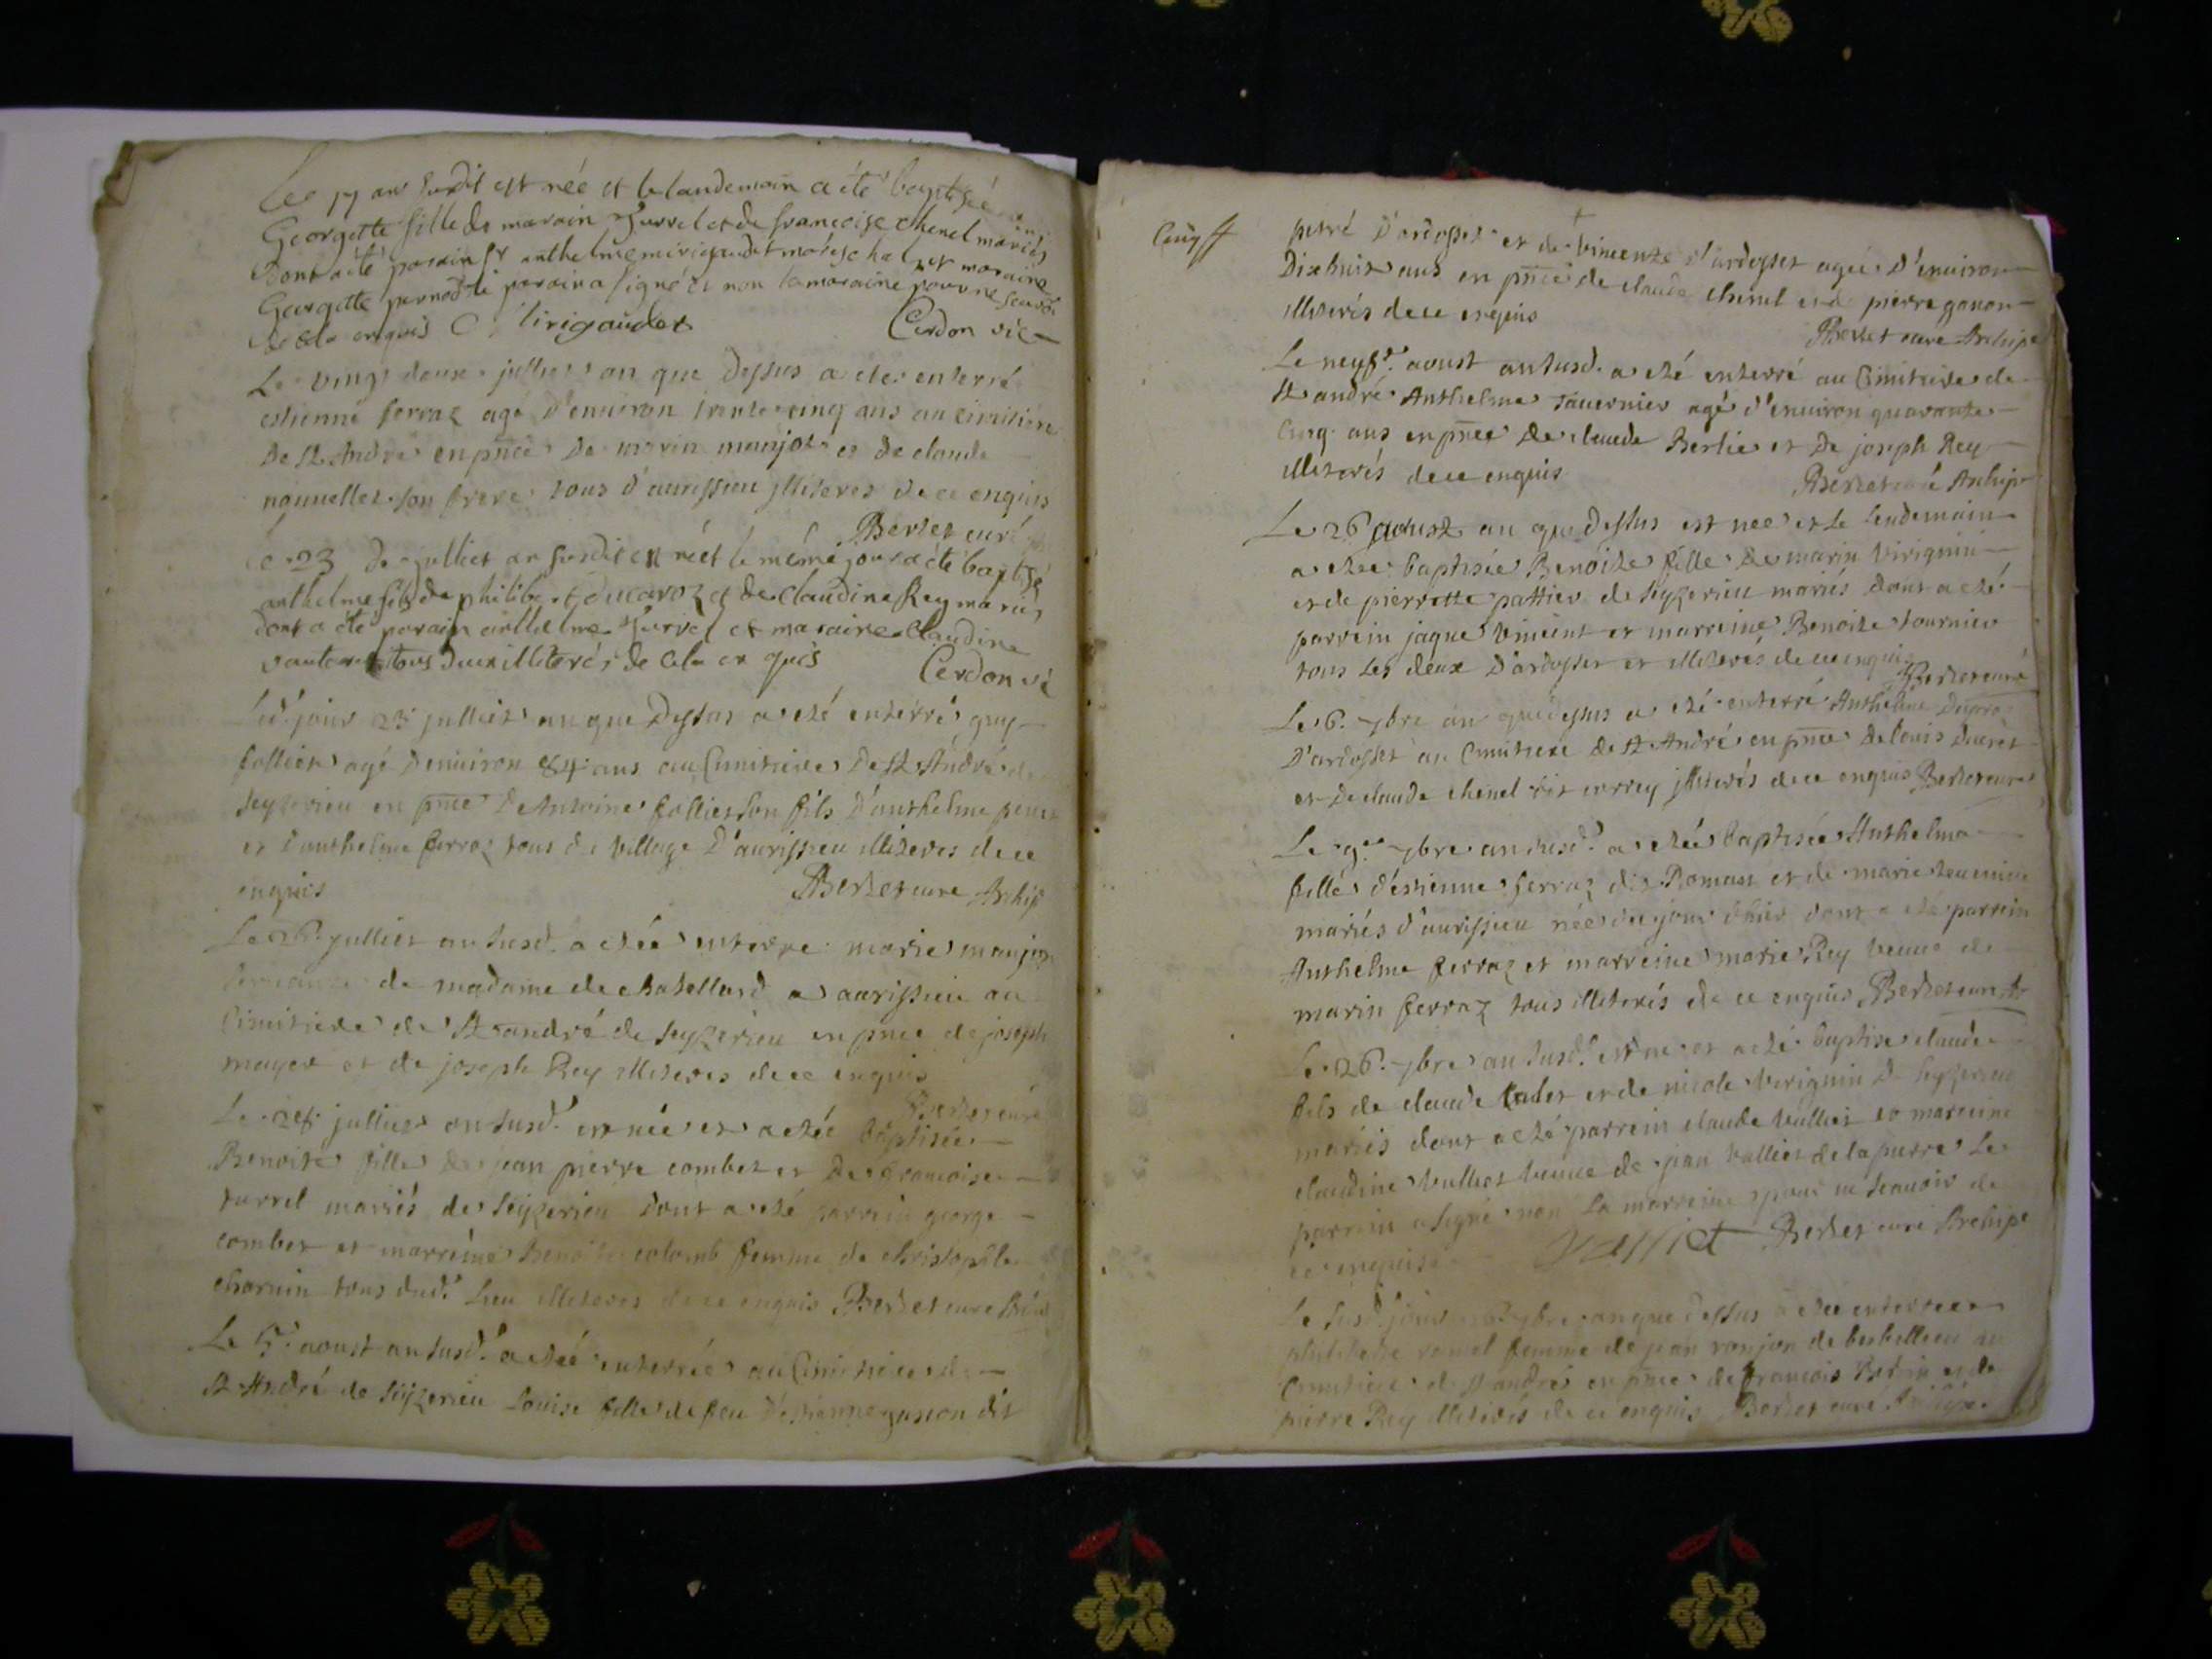 Le 17 an susdit est née et le landemain a été baptisée
Georgette fille de marain Surrel et de francoise chenel mariés
Dont a été parain Sr anthelme mirigaudet maréchal et maraine
Georgette pernod le parain a signé et non la maraine pour ne scavoir
de cela enquis C. Virigaudet Cerdon vic
Le vingt deux julliet an que dessus a été enterré
estienne ferraz agé d'environ trente cinq ans au cimitiere
De St André en pnce De marin manjot et de claude
nonnellet son frere tous d'aurissieu illiteres de ce enquis
Berset curé
Le 23 de julliet an susdit est né et le même jour a été baptisé
anthelme fils de philibert ducaroz et de claudine Rey mariés
dont a été parain anthelme Surrel et maraine claudine
tous deux illiterés de cela en quis Cerdon vic
Led. jour 23 julliet an que Dessus a esté enterré guy
follier agé d'environ 84 ans au Cimitiere De St André de
seyzerieu en pnce De Antoine follier son fils D'anthelme
et D'anthelme ferraz tous du village D'aurissieu illiteres de ce
enquis Berset cure Archip
Le 26 julliet an susd. a esté enterre marie manjon
servante de madame de chatellard a aurissieu au
Cimitiere de St andré de seyzerieu en pnce de joseph
mayer et de joseph Rey illiteres de ce enquis
Berset curé
Le 28 julliet an susd. est née et a esté baptisée
Benoite fille de jean pierre combet et De francoise
surrel mariés de seyzerieu Dont a esté parrein george
combet et marreine Benoite colomb femme de christophle
charvin tous dud. Lieu illiteres de ce enquis Berset cure
Le 5. aoust an susd. a esté enterrée au Cimitiere de
St André de Seyzerieu Louise fille de feu D'estienne ganon dit
Cuyff
petré D'ardosset et de vincente d'ardosset agée D'environ
Dixhuit ans en pnce de claude chenel et de pierre ganon
illiterés de ce enquis
Berset cure Archip
Le neuf. aoust an susd. a esté enterré au Cimitiere de
St andré Anthelme Tavernier agé d'environ quarante
Cinq ans en pnce De claude Berlie et De joseph Rey
illiterés de ce enquis Berset curé Archip
Le 26 aoust an que dessus est nee et le lendemain
a esté baptisée Benoite fille De marin virignin
et de pierrette pattier de seyzerieu mariés dont a esté
parrein jaque vincent et marreine Benoite tournier
tous les deux D'ardosset et illiterés de ce enquis
Berset curé
Le 6. 7bre an que dessus a esté enterré Anthelme
D'ardosset au Cimitiere de St André en pnce De louis ducret
et De claude chenel dit correy illiterés de ce enquis Berset cure
Le 9. 7bre an susd. a esté baptisée Anthelma
fille d'estienne ferraz dit Roman et de marie
mariés d'aurissieu née du jour d'hier dont a esté parrein
Anthelme ferraz et marreine marie Rey veuve de
marin ferraz tous illiterés de ce enquis Berset cure
Le 26. 7bre an susd. est né et a esté baptise claude
fils de claude et de nicole virignin de seyzerieu
mariés dont a esté parrein claude vulliet et marreine
claudine vulliet veuve de jean vulliet de la pierre Le
parrein a signé non La marreine pour ne scauoir de
ce enquise vulliet Berset curé Archip
Le susd. jour 26 7bre an que dessus a esté enterree
philiberte ramel femme de jean ronjon de au
Cimitiere de St andré en pnce de francois et de
pierre Rey illiterés de ce enquis Berset curé Archip